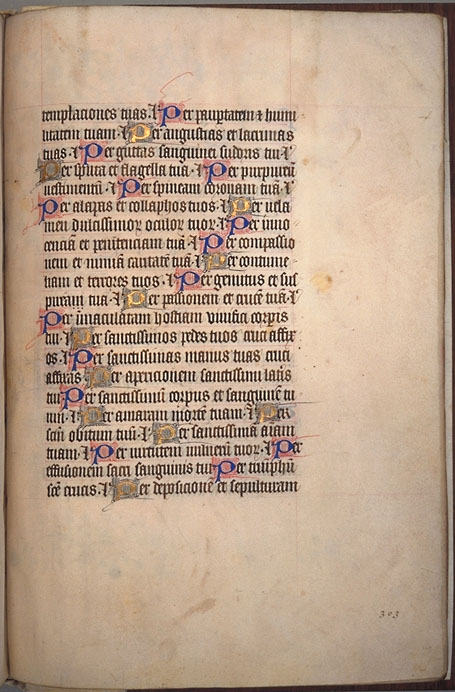 temptaciones tuas. Per paupertatem & humi
litatem tuam. Per angustias et lacrimas
tuas. Per guttas sanguinei sudoris tui
Per sputa et flagella tua. Per purpureū
uestimentū. Per spineam coronam tuā.
Per alapas et collaphos tuos. Per uela
men dulcissimor oculor tuor. Per inno
cenciā et penitenciam tuā. Per compassio
nem et nimiā caritatē tuā. Per contume
liam et terrores tuos. Per gemitus et sus
piriam tua. Per passionem et crucē tuā.
Per īmaculatam hostiam viuifici corpis
tui. Per sanctissimos pedes tuos cruci affix
os. Per sanctissimas manus tuas cruci
affixas. Per apericionem sanctissimi latis
tui Per sanctissimū corpus et sanguinē tu
um. Per amaram mortē tuam. Per
scm obitum tuū. Per sanctissimā aīam
tuam. Per uirtutem uulnerū tuor. Per
effusionem sacri sanguinis tui Per triūphū
scē crucis. Per deposicionē et sepulturam
303